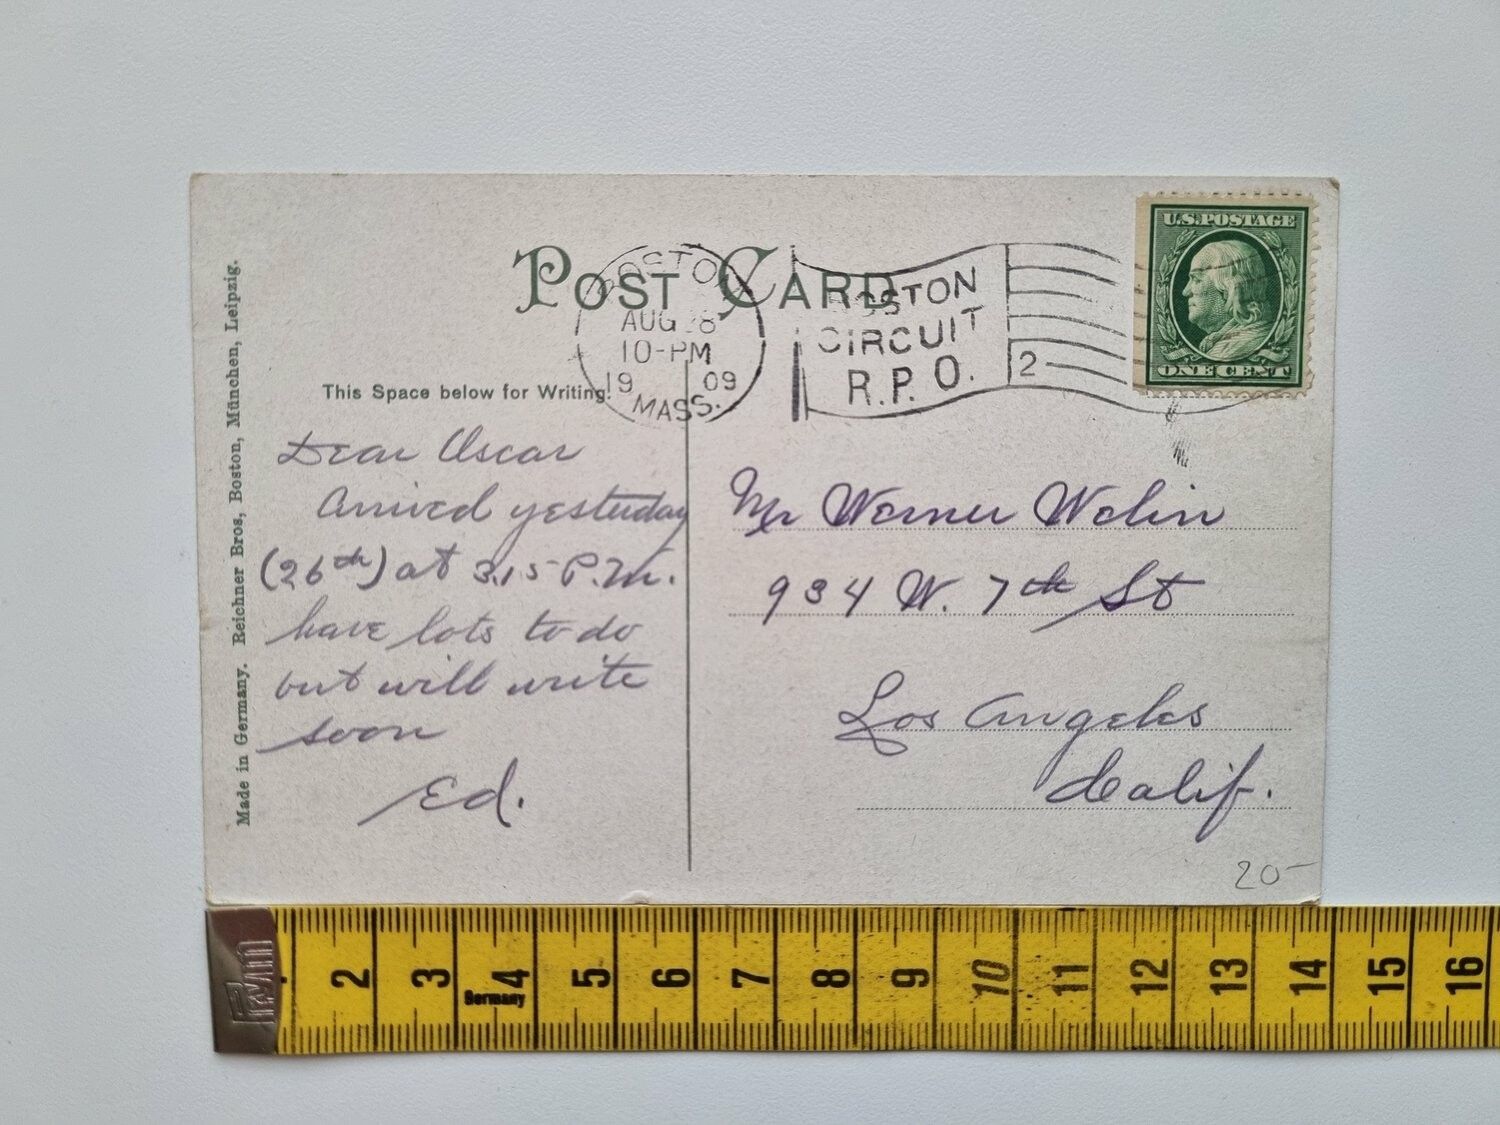 POST CARD
BOSTON
AUG 28
10-PM
19 09
MASS.
BOSTON
CIRCUIT
R.P.O.
2
U.S. POSTAGE
ONE CENT
This Space below for Writing!
Dear Oscar
Arrived yesterday
(26th) at 3.15 P.M.
have lots to do
but will write
soon
Ed.
Mr Werner Welin
934 W. 7th St
Los Angeles
Calif.
20-
Made in Germany. Reichner Bros, Boston, München, Leipzig.
2 3 4 5 6 7 8 9 10 11 12 13 14 15 16
Germany